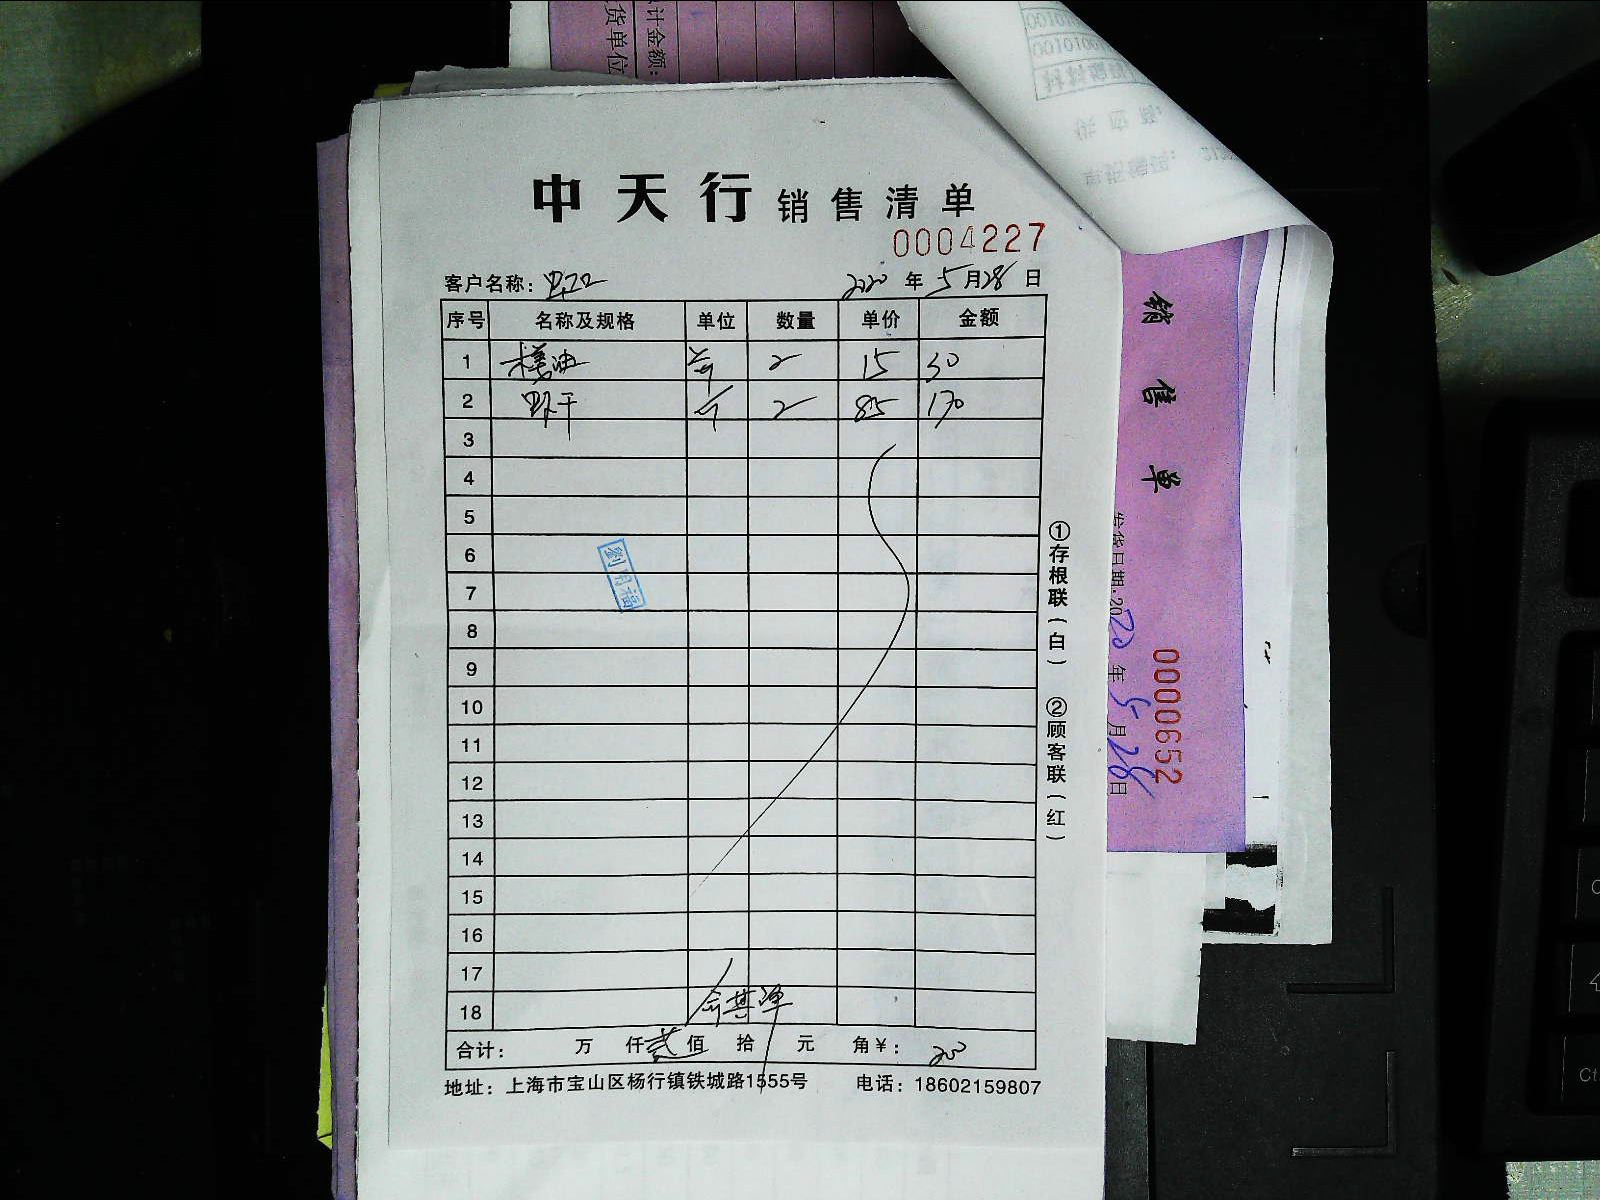 货单位
计金额:
中天行 销售清单
0004227
客户名称: 2020 年 5 月 28 日
序号 名称及规格 单位 数量 单价 金额
1 油 2 15 30
2 干 2 85 170
3
4
5
6
7
8
9
10
11
12
13
14
15
16
17
18
劉用福
合计: 万 仟 贰 佰 拾 元 角 ¥: 200
地址: 上海市宝山区杨行镇铁城路1555号 电话: 18602159807
①存根联(白) ②顾客联(红)
销售单
发货日期:2020 年 5 月 28 日
0000652